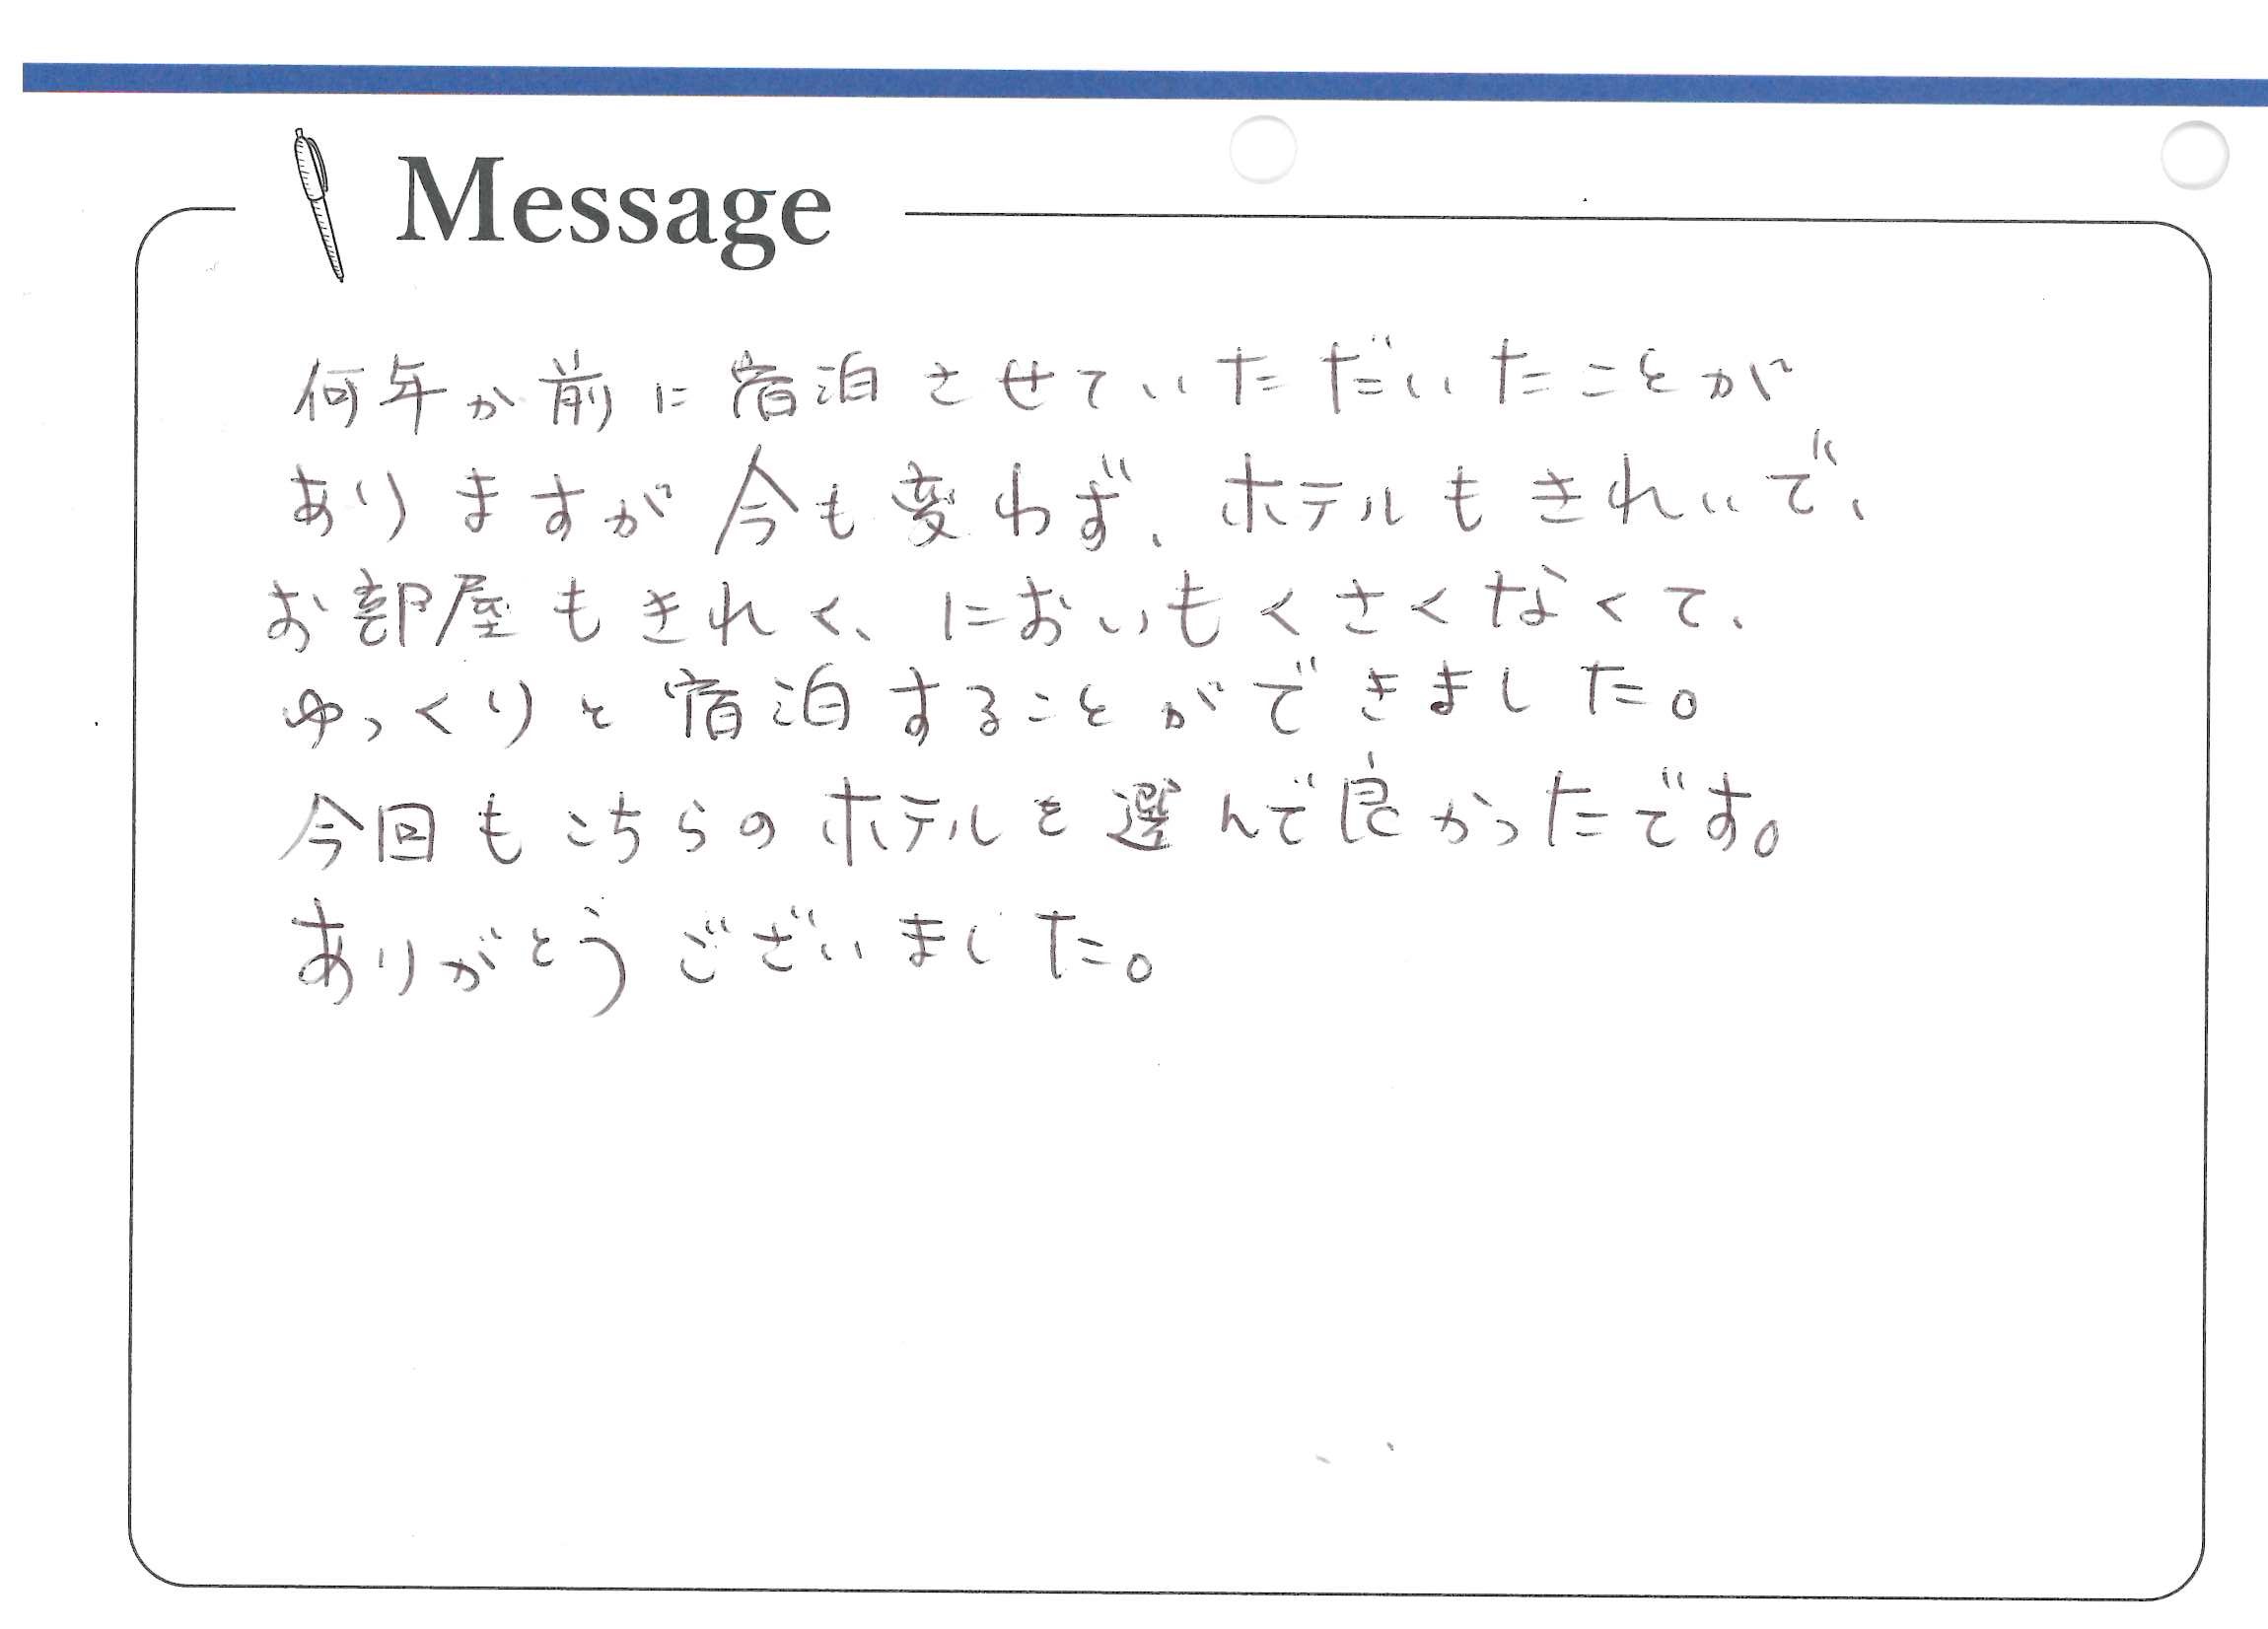 Message
何年か前に宿泊させていただいたことが
ありますが今も変わず、ホテルもきれいで、
お部屋もきれく、においもくさくなくて、
ゆっくりと宿泊することができました。
今回もこちらのホテルを選んで良かったです。
ありがとうございました。